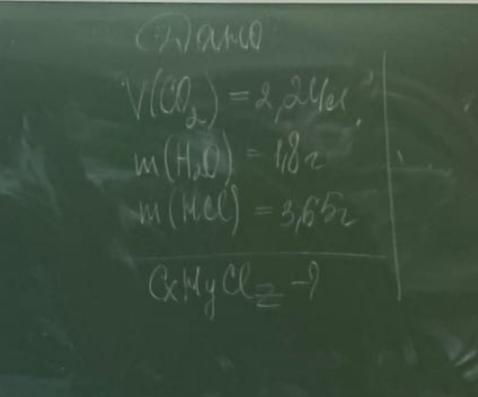 Дано
V(CO₂) = 2,24л
m(H₂O) = 1,8г
m(HCl) = 3,65г
CxHyClz - ?